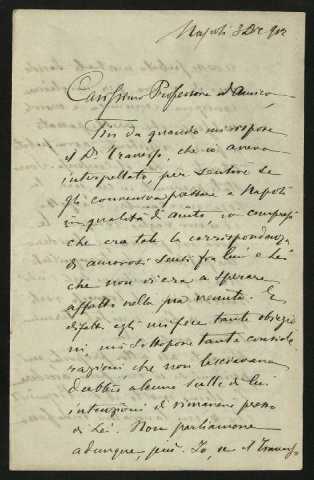 Napoli 3 Dic 902
Carissimo Professore ed amico,
Fin da quando mi rispose
il Dr Traverso, che io aveva
interpellato, per sentire se
gli conveniva passare a Napoli
in qualità di aiuto io compresi
che era tale la corrispondenza
di amorosi sensi fra lui e Lei
che non vi era a sperare
affatto nella sua venuta. E
difatti egli mi fece tante obiezio
ni, mi sottopose tante conside
razioni che non lasciavano
dubbio alcuno sulle di lui
intenzioni di rimanere presso
di Lei. Non parliamone
adunque, più. Io, se il Traverso